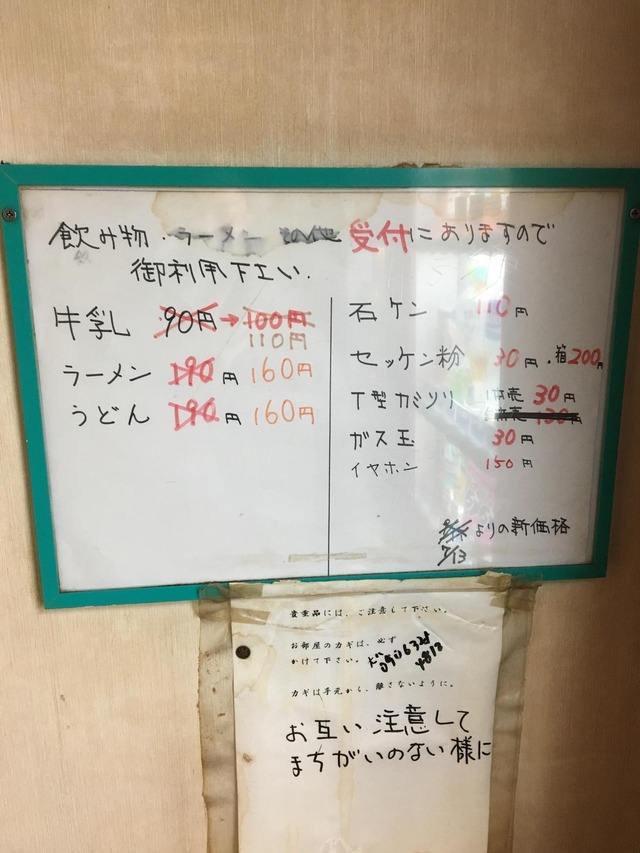 飲み物・ラーメン その他 受付にありますので
御利用下エい.
牛乳 90円→100円
110円
ラーメン 190円 160円
うどん 190円 160円
石ケン 110円
セッケン粉 30円・箱200円
T型カミソリ 1本売 30円
130円
ガス玉 30円
イヤホン 150円
よりの新価格
7/13
貴重品には、ご注意して下さい。
お部屋のカギは、必ず
かけて下さい。
カギは手元から、離さないように。
お互い注意して
まちがいのない様に